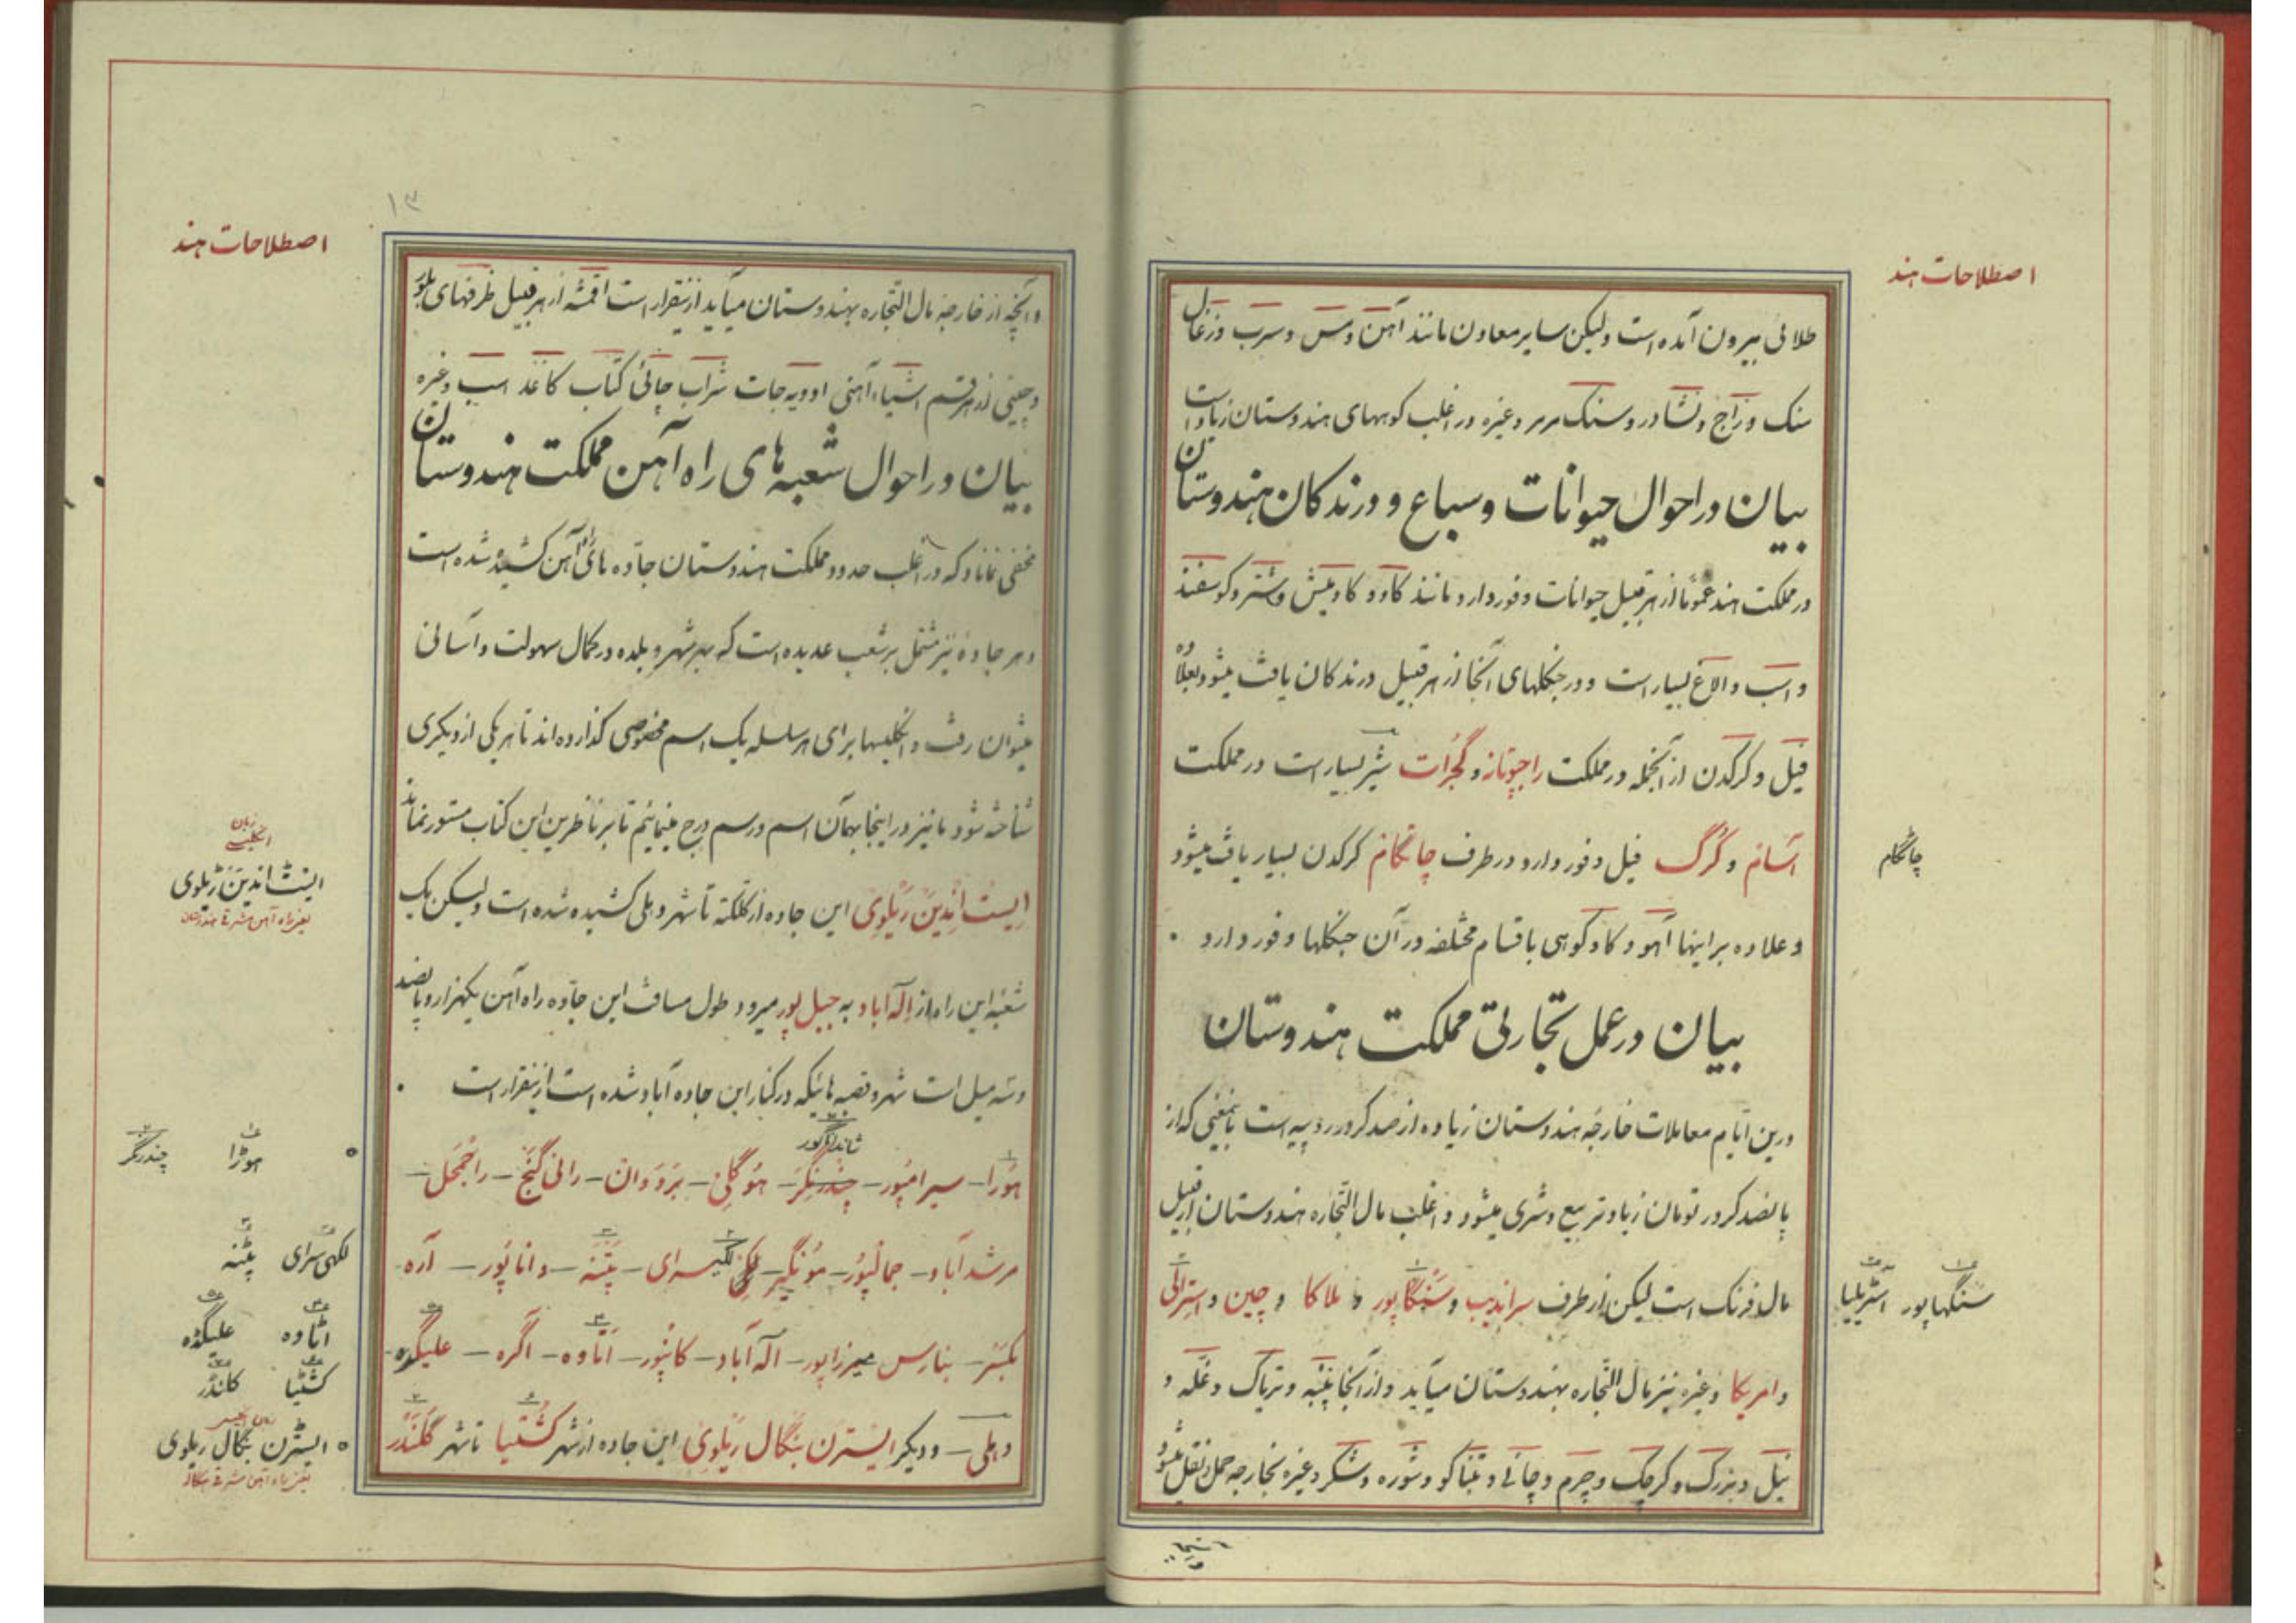 اصطلاحات هند
طلائی بیرون آمده است ولیکن سایر معاون مانند آهن و مس و سرب و زغال
سنک و زاج و نشادر و سنک مرمر و غیره در اغلب کوههای هندوستان زیاد است
بیان در احوال حیوانات و سباع و درندکان هندوستان
در مملکت هند عموماً از هر قبیل حیوانات وفور دارد مانند کاو و کاومیش و شتر و کوسفند
و اسب و الاغ بسیار است و در جنکلهای آنجا از هر قبیل درندکان یافت میشود بعلاوه
فیل و کرکدن از آنجمله در مملکت راجپوتانه و گجرات شیر بسیار است در مملکت
آسام و گرگ فیل وفور دارد در طرف چاتگام کرکدن بسیار یافت میشود
چاٹگام
و علاوه بر اینها آهو و کاو کوهی باقسام مختلفه در آن جنکلها وفور دارد
بیان در عمل تجارتی مملکت هندوستان
درین ایام معاملات خارجه هندوستان زیاده از صد کرور روپیه است بمعنی که از
پانصد کرور تومان زیادتر بیع و شری میشود و اغلب مال التجاره هندوستان از قبیل
مال فرنک است لیکن از طرف سراندیب و سنگاپور و ملاکا و چین و استرالی
سنگهاپور اسٹریلیا
و امریکا و غیره نیز مال التجاره بهندوستان میآید و از آنجا پنبه و تریاک و غله و
نیل و بزرک و کرچک و چرم و چائے و تنباکو و شوره و شکر و غیره بخارجه حمل و نقل میشود
۱۳
اصطلاحات هند
و آنچه از خارجه مال التجاره بهندوستان میآید ازینقرار است اقمشه از هر قبیل ظرفهای بلور
و چینی از هر قسم اشیاء آهنی ادویه جات شراب چائی کتاب کاغذ اسب و غیره
بیان در احوال شعبه های راه آهن مملکت هندوستان
مخفی نماناد که در اغلب حدود مملکت هندوستان جاده های راه آهن کشیده شده است
و هر جاده نیز مشتمل بر شعب عدیده است که بهر شهر و بلده در کمال سهولت و آسانی
میتوان رفت و انکلیسها برای هر سلسله یک اسم مخصوصی کذارده اند تا هر یکی از دیکری
شناخته شود ما نیز در اینجا بهمان اسم و رسم درج مینمائیم تا بر ناظرین این کتاب مستور نماند
زبان انکلیسے
ایسٹ انڈین ریلوی
یعنی راه آهن مشرقے هندوستان
ایست اندین ریلوی این جاده از کلکته تا شهر دهلی کشیده شده است ولیکن یک
شعبه این راه از اله آباد به جبل پور میرود طول مسافت این جاده راه آهن یکهزار و پانصد
و سه میل است شهر و قصبه هائیکه در کنار این جاده آباد شده است ازینقرار است
هوڑا چندرنگر
هورا – سیرامپور – چندرنگر – هوگلی – بردوان – رانی گنج – راجمحل –
لکهی سرای پٹنه
مرشدآباد – جمالپور – مونگیر – لکیسرای – پتنه – داناپور – آره –
اٹاوه علیگڈه
بکسر – بنارس میرزاپور – اله آباد – کانپور – اتاوه – اگره – علیگده –
کشٹیا کلنڈر
دهلی – و دیکر ایسترن بنگال ریلوی این جاده از شهر کشتیا تا شهر گلندر
ایسٹرن بنگال ریلوی
یعنی راه آهن مشرقے بنگاله